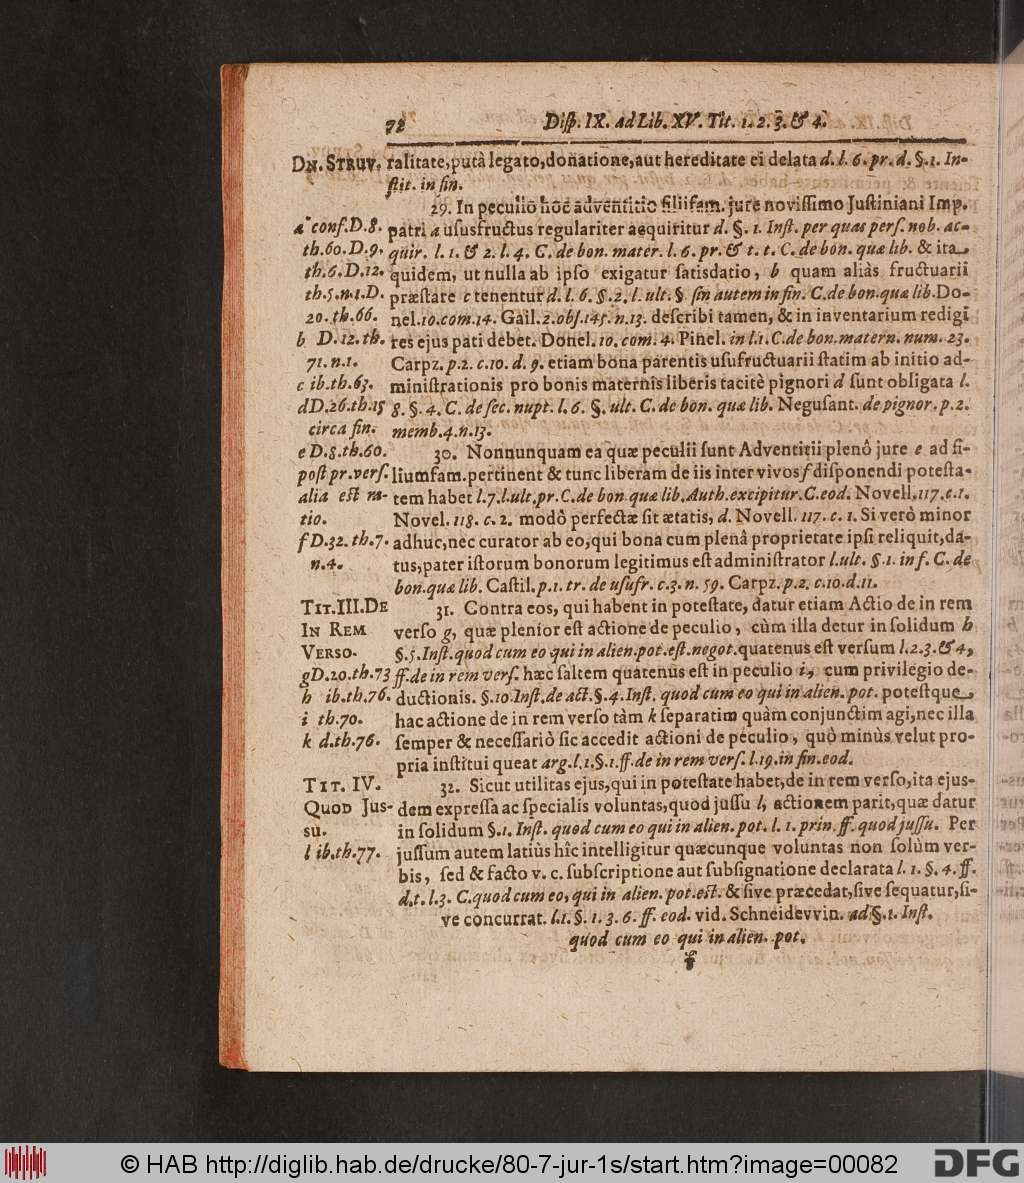 72
Disp. IX. ad Lib. XV. Tit. 1. 2. 3. & 4.
DN. STRUV.
ralitate, putà legato, donatione, aut hereditate ei delata d. l. 6. pr. d. §. 1. In-
stit. in fin.
29. In peculio hoc adventitio filiifam. jure novissimo Justiniani Imp.
patri a ususfructus regulariter acquiritur d. §. 1. Inst. per quas pers. nob. ac-
quir. l. 1. & 2. l. 4. C. de bon. mater. l. 6. pr. & t. t. C. de bon. quæ lib. & ita
quidem, ut nulla ab ipso exigatur satisdatio, b quam aliàs fructuarii
præstare c tenentur d. l. 6. §. 2. l. ult. §. sin autem in fin. C. de bon. quæ lib. Do-
nel. 10. com. 14. Gail. 2. obs. 145. n. 13. describi tamen, & in inventarium redigi
res ejus pati debet. Donel. 10. com. 4. Pinel. in l. 1. C. de bon. matern. num. 23.
Carpz. p. 2. c. 10. d. 9. etiam bona parentis usufructuarii statim ab initio ad-
ministrationis pro bonis maternis liberis tacitè pignori d sunt obligata l.
8. §. 4. C. de sec. nupt. l. 6. §. ult. C. de bon. quæ lib. Negusant. de pignor. p. 2.
memb. 4. n. 13.
30. Nonnunquam ea quæ peculii sunt Adventitii plenô jure e ad fi-
liumfam. pertinent & tunc liberam de iis inter vivos f disponendi potesta-
tem habet l. 7. l. ult. pr. C. de bon. quæ lib. Auth. excipitur. C. eod. Novell. 117. c. 1.
Novel. 118. c. 2. modô perfectæ sit ætatis, d. Novell. 117. c. 1. Si verò minor
adhuc, nec curator ab eo, qui bona cum plenâ proprietate ipsi reliquit, da-
tus, pater istorum bonorum legitimus est administrator l. ult. §. 1. in f. C. de
bon. quæ lib. Castil. p. 1. tr. de usufr. c. 3. n. 59. Carpz. p. 2. c. 10. d. 11.
31. Contra eos, qui habent in potestate, datur etiam Actio de in rem
verso g, quæ plenior est actione de peculio, cùm illa detur in solidum h
§. 5. Inst. quod cum eo qui in alien. pot. est. negot. quatenus est versum l. 2. 3. & 4,
ff. de in rem vers. hæc saltem quatenus est in peculio i, cum privilegio de-
ductionis. §. 10. Inst. de act. §. 4. Inst. quod cum eo qui in alien. pot. potestque
hac actione de in rem verso tàm k separatim quàm conjunctim agi, nec illa
semper & necessariò sic accedit actioni de peculio, quò minùs velut pro-
pria institui queat arg. l. 1. §. 1. ff. de in rem vers. l. 19. in fin. eod.
32. Sicut utilitas ejus, qui in potestate habet, de in rem verso, ita ejus-
dem expressa ac specialis voluntas, quod jussu l, actionem parit, quæ datur
in solidum §. 1. Inst. quod cum eo qui in alien. pot. l. 1. prin. ff. quod jussu. Per
jussum autem latiùs hîc intelligitur quæcunque voluntas non solùm ver-
bis, sed & facto v. c. subscriptione aut subsignatione declarata l. 1. §. 4. ff.
d. t. l. 3. C. quod cum eo, qui in alien. pot. est. & sive præcedat, sive sequatur, si-
ve concurrat. l. 1. §. 1. 3. 6. ff. eod. vid. Schneidevvin. ad §. 1. Inst.
quod cum eo qui in alien. pot.
a conf. D. 8.
th. 60. D. 9.
th. 6. D. 12.
th. 5. n. 1. D.
20. th. 66.
b D. 12. th.
71. n. 1.
c ib. th. 63.
d D. 26. th. 15
circa fin.
e D. 8. th. 60.
post pr. vers.
alia est ra-
tio.
f D. 32. th. 7.
n. 4.
TIT. III. DE
IN REM
VERSO.
g D. 20. th. 73
h ib. th. 76.
i th. 70.
k d. th. 76.
TIT. IV.
QUOD JUS-
SU.
l ib. th. 77.
© HAB http://diglib.hab.de/drucke/80-7-jur-1s/start.htm?image=00082
DFG